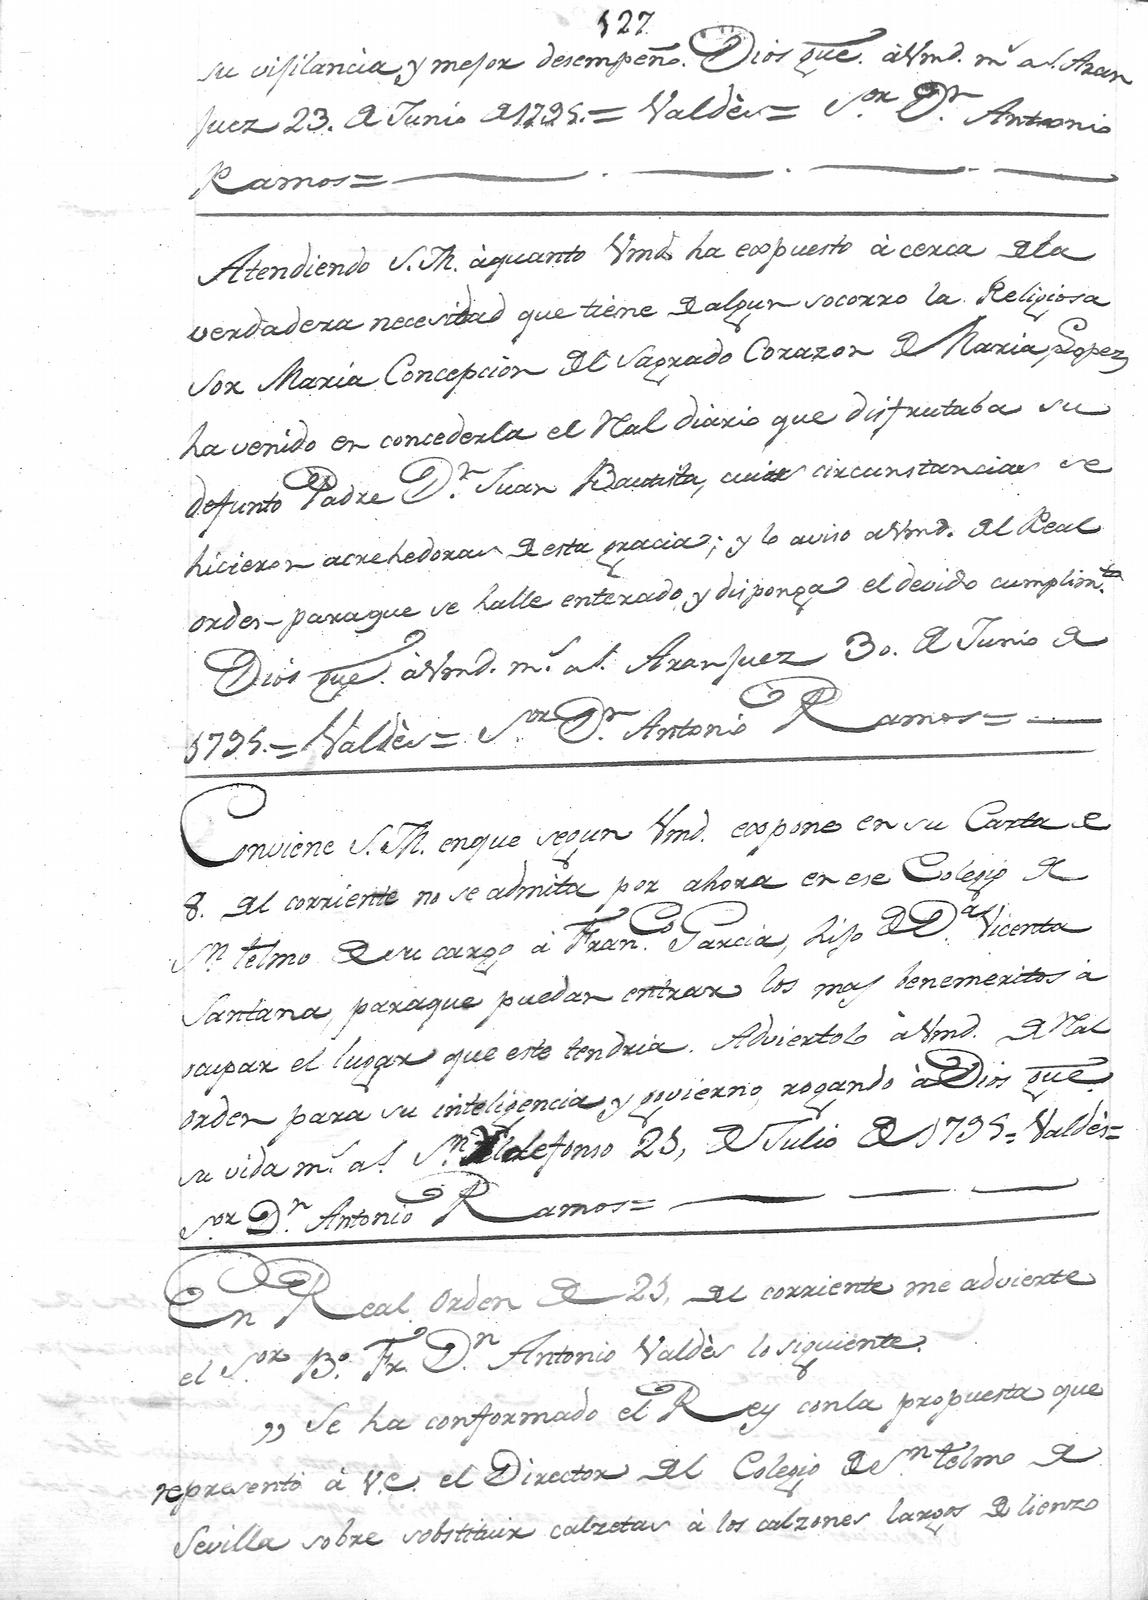 127
su vijilancia y mejor desempeño. Dios gue. à Vmd. ms. as. Aran
juez 23. de Junio de 1795.= Valdès= Sor. Dn. Antonio
Ramos=
Atendiendo S. M. à quanto Vmd ha expuesto à cerca de la
verdadera necesidad que tiene de algun socorro la Religiosa
Sor Maria Concepcion del Sagrado Corazon de Maria, Lopez,
ha venido en concederla el Rl al diario que disfrutaba su
defunto Padre Dn. Juan Bautista, cuias circunstancias se
hicieron acrehedoras de esta gracia; y lo aviso a Vmd. del Real
orden paraque se halle enterado, y disponga el devido cumplimto.
Dios gue. à Vmd. ms. as. Aranjuez 30. de Junio de
1795.= Valdès= Sor. Dn. Antonio Ramos=
Conviene S. M. en que segun Vmd. expone en su Carta de
8. del corriente no se admita por ahora en ese Colegio de
Sn. telmo de su cargo à Franco. Garcia, hijo de Da. Vicenta
Santana, paraque puedan entrar los mas benemeritos à
ocupar el lugar que este tendria. Adviertolo à Vmd. de Rl
orden para su inteligencia, y govierno, rogando à Dios gue.
su vida ms. as. Sn. Ildefonso 25, de Julio de 1795= Valdès=
Sor. Dn. Antonio Ramos=
En Real Orden de 25, del corriente me advierte
el Sor. Bo. Fr. Dn. Antonio Valdès lo siguiente.
„ Se ha conformado el Rey con la propuesta que
representó à V.E. el Director del Colegio de Sn. telmo de
Sevilla sobre substituir calzetas à los calzones largos de lienzo